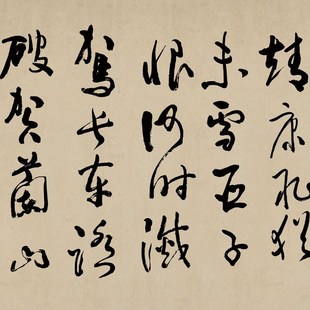 靖康恥猶
未雪臣子
恨何時滅
駕長車踏
破賀蘭山